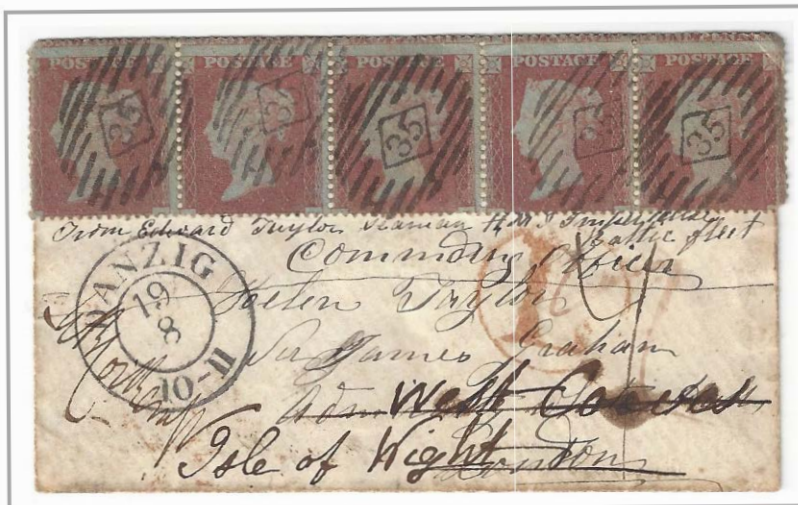 POSTAGE POSTAGE POSTAGE POSTAGE POSTAGE
35 35 35 35 35
From Edward Taylor Seaman H.M.S
Baltic fleet
Commdg Officer
DANZIG
19
8
10-11
Helen Taylor
Sir James Graham
West Cowes
Isle of Wight
London